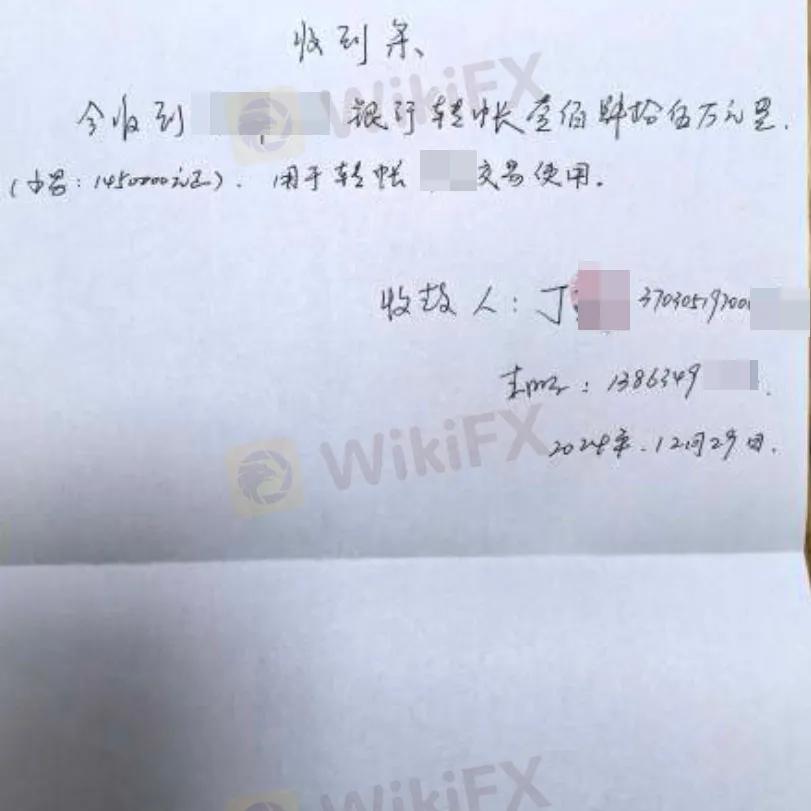 收到条
今收到 银行转帐壹佰肆拾伍万元整.
(小写:1450000元正). 用于转帐 交易使用.
收款人: 丁 3703051970
手机: 1386349 .
2024年.12月29日.
WikiFX
WikiFX
WikiFX